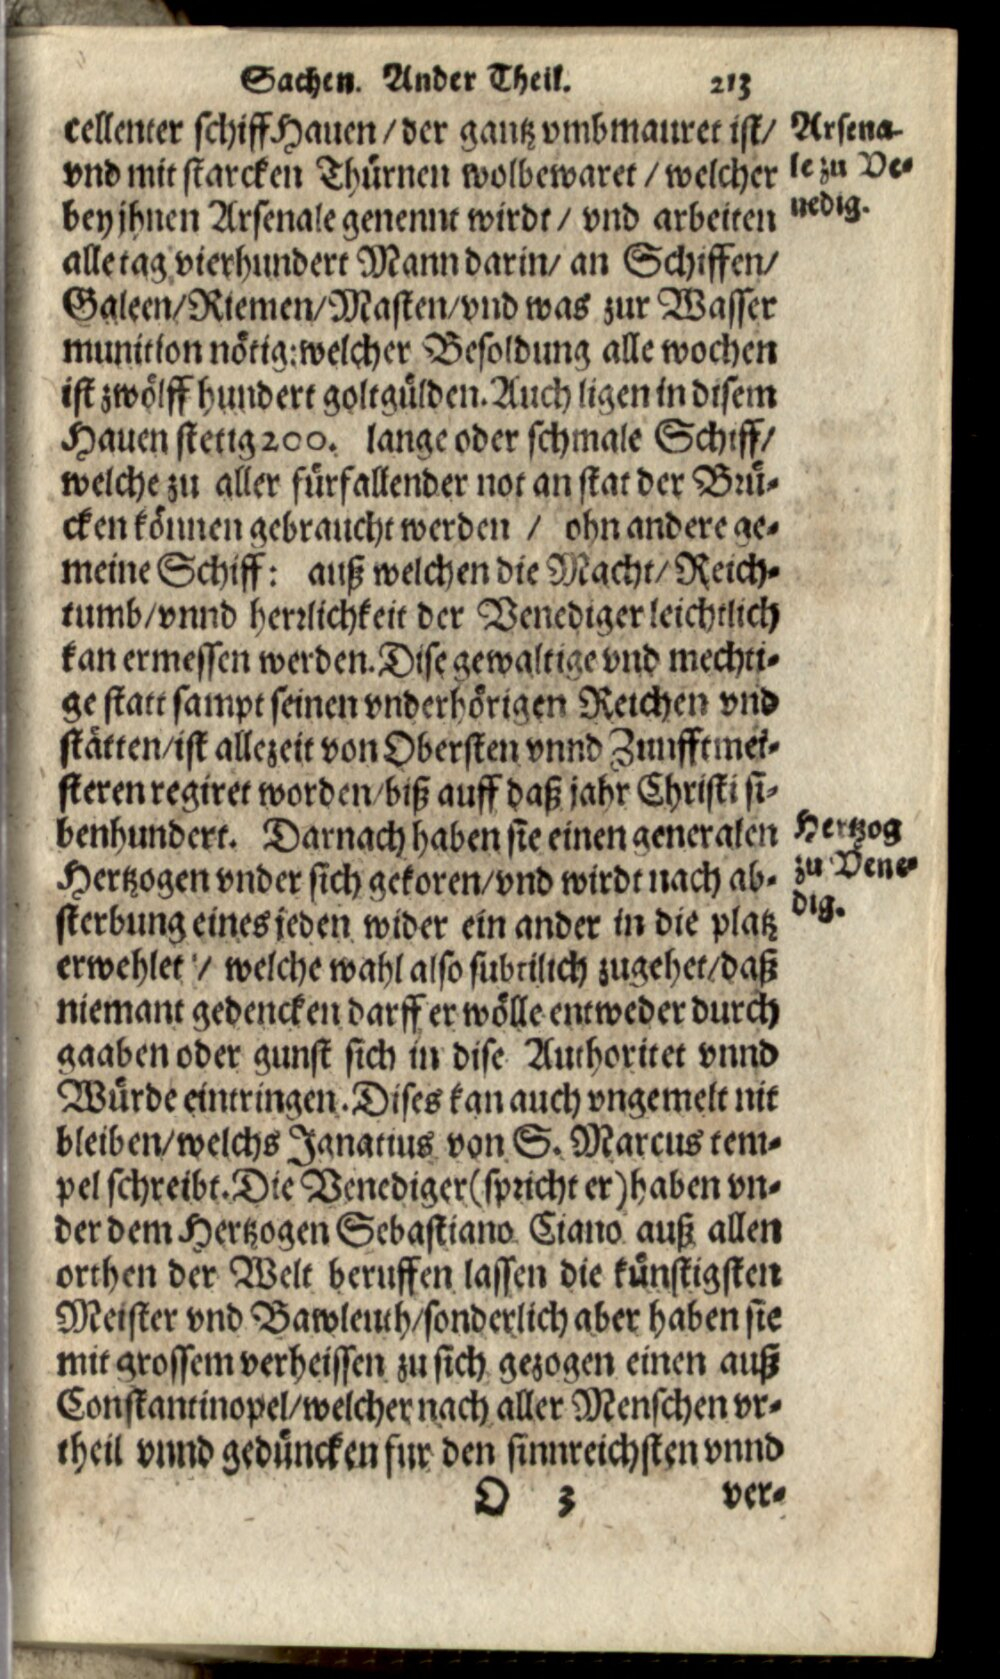 Sachen. Ander Theil. 213
cellenter schiff Hauen / der gantz vmbmauret ist/
vnd mit starcken Thürnen wolbewaret / welcher
bey jhnen Arsenale genennt wirdt / vnd arbeiten
alle tag vierhundert Mann darin / an Schiffen/
Galeen/Riemen/Masten/vnd was zur Wasser
munition nötig: welcher Besoldung alle wochen
ist zwölff hundert goltgülden. Auch ligen in disem
Hauen stetig 200. lange oder schmale Schiff/
welche zu aller fürfallender not an stat der Brü-
cken können gebraucht werden / ohn andere ge-
meine Schiff: auß welchen die Macht/Reich-
tumb/vnnd herrlichkeit der Venediger leichtlich
kan ermessen werden. Dise gewaltige vnd mechti-
ge statt sampt seinen vnderhörigen Reichen vnd
stätten/ist allezeit von Obersten vnnd Zunfftmei-
steren regiret worden/biß auff daß jahr Christi si-
benhundert. Darnach haben sie einen generalen
Hertzogen vnder sich gekoren/vnd wirdt nach ab-
sterbung eines jeden wider ein ander in die platz
erwehlet / welche wahl also subtilich zugehet/daß
niemant gedencken darff er wölle entweder durch
gaaben oder gunst sich in dise Authoritet vnnd
Würde eintringen. Dises kan auch vngemelt nit
bleiben/welchs Ignatius von S. Marcus tem-
pel schreibt. Die Venediger (spricht er) haben vn-
der dem Hertzogen Sebastiano Ciano auß allen
orthen der Welt beruffen lassen die künstigsten
Meister vnd Bawleuth/sonderlich aber haben sie
mit grossem verheissen zu sich gezogen einen auß
Constantinopel/welcher nach aller Menschen vr-
theil vnnd gedüncken fur den sinnreichsten vnnd
O 3 ver-
Arsena-
le zu Ve-
nedig.
Hertzog
zu Vene-
dig.